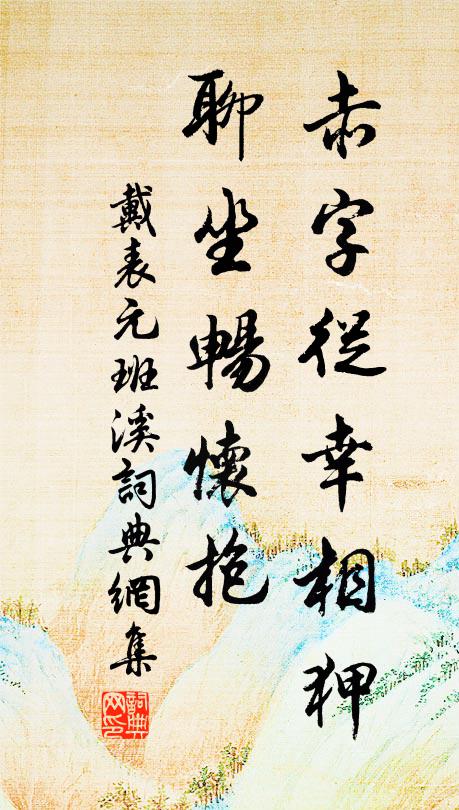 赤字從幸相狎
聊坐暢懷抱
戴表元班溪詞典網集
詞典
网印